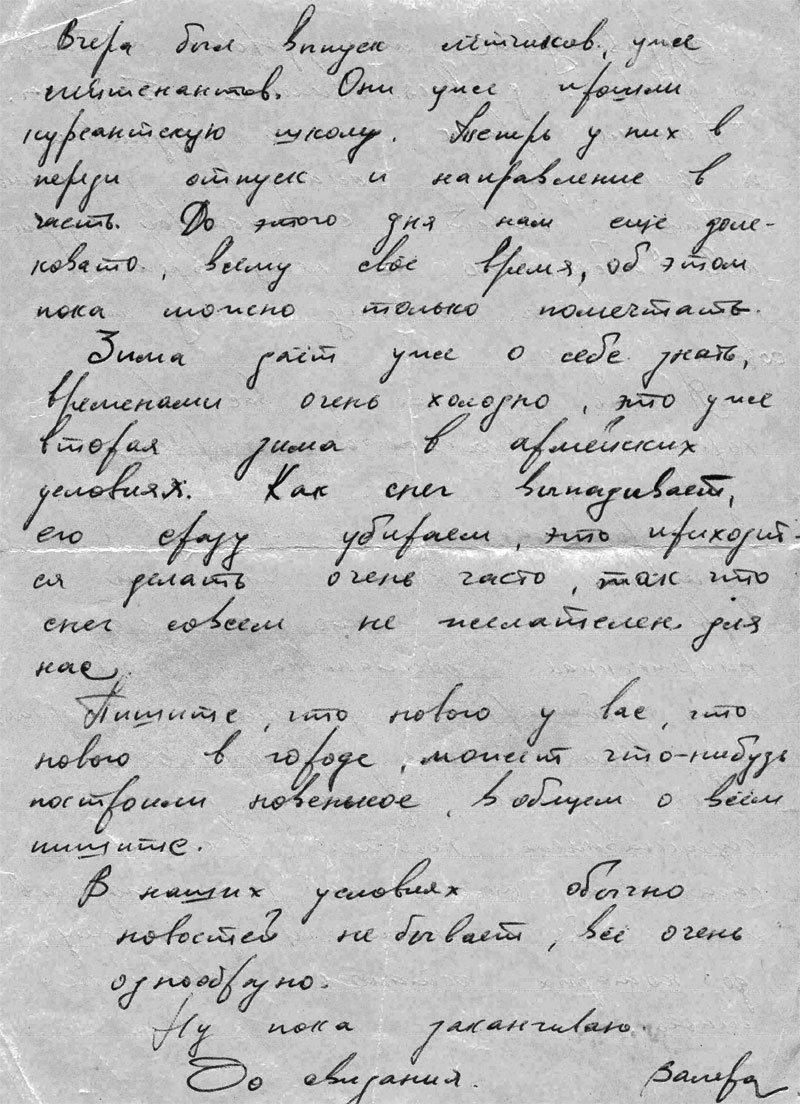 Вчера был выпуск лётчиков, уже
лейтенантов. Они уже прошли
курсантскую школу. Теперь у них в
переди отпуск и направление в
часть. До этого дня нам ещё доле-
ковато, всему своё время, об этом
пока можно только помечтать.
Зима даёт уже о себе знать,
временами очень холодно, это уже
вторая зима в армейских
условиях. Как снег выпадывает,
его сразу убираем, это приходит-
ся делать очень часто, так что
снег совсем не желателен для
нас.
Пишите, что нового у вас, что
нового в городе, может что-нибудь
построили новенькое, в общем о всём
пишите.
В наших условиях обычно
новостей не бывает, всё очень
однообразно.
Ну пока заканчиваю.
До свидания. Валера